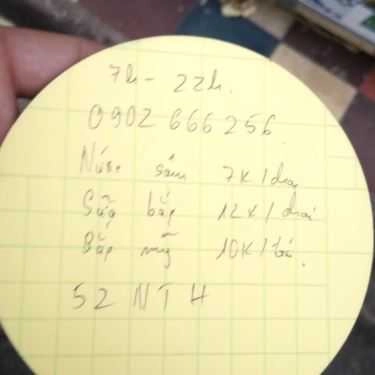 7h - 22h.
0902 666 256
Nước sâm 7K/chai
Sữa bắp 12K/chai
Bắp mỹ 10K/trái.
52 NTH